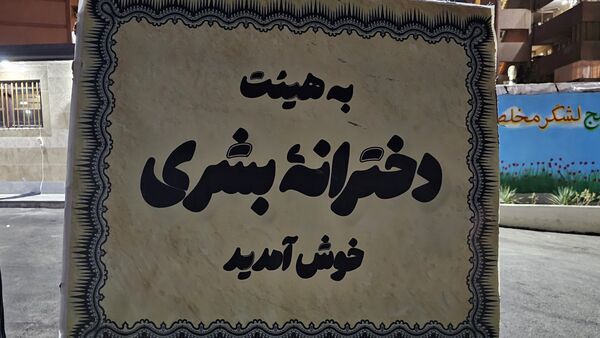 به هیئت
دخترانهٔ بشری
خوش آمدید
لشگر مخلص